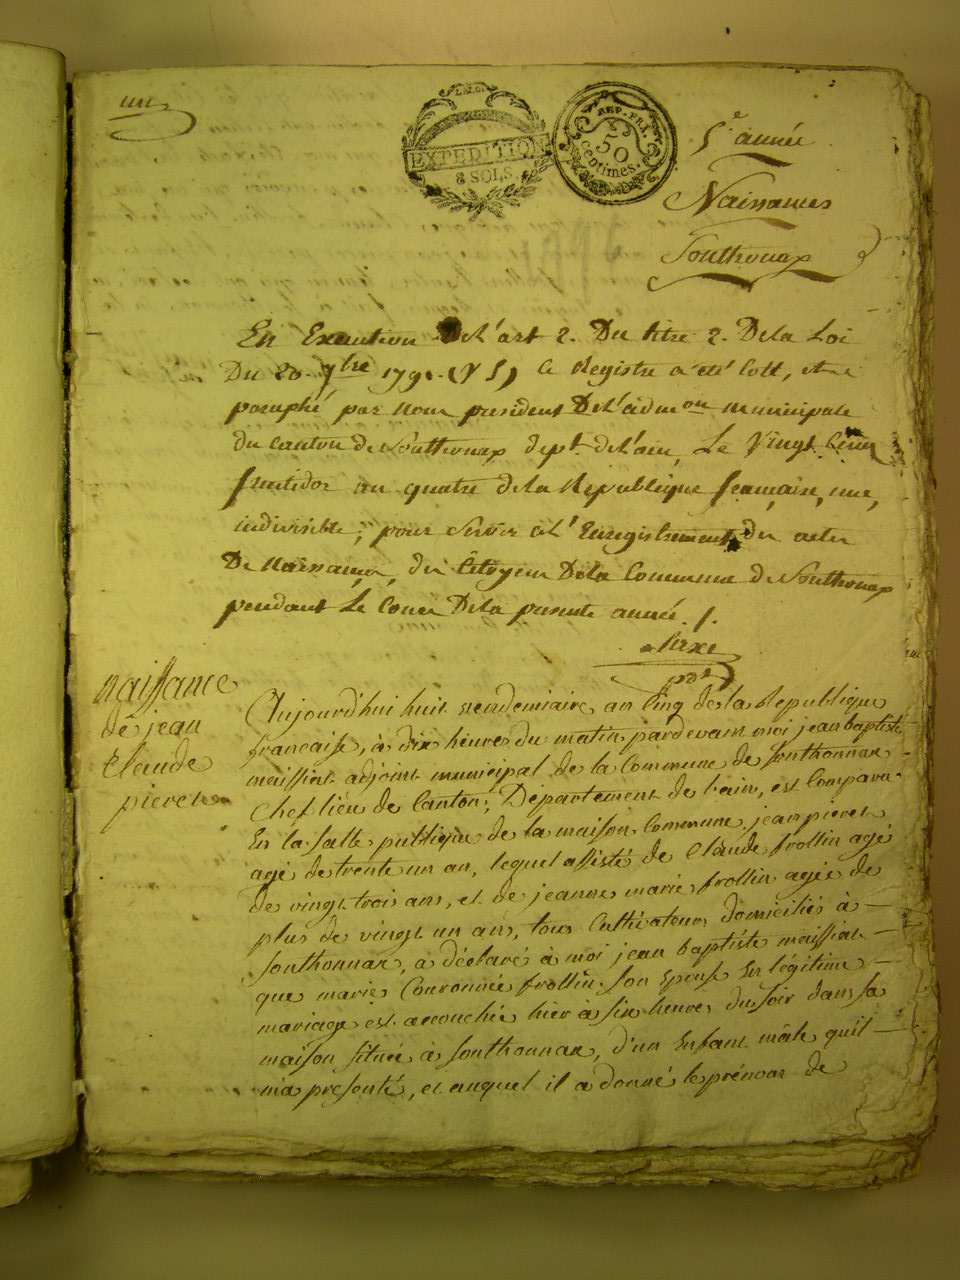 un
LA LOI
EXPEDITION
8 SOLS.
REP. FRA.
50
Centimes.
5.e année
Naissances
Sonthonax
En Execution de l'art 2. Du titre 2. De la Loi
Du 20. 7bre 179 . (V S) Ce Registre a été Cotté, et
paraphé par nous president De l'adm.on municipale
du canton de Sonthonax dept. de l'ain, Le Vingt Cinq
fructidor an quatre de la République française, une,
indivisible, pour servir à l'Enregistrement des actes
De Naissances, des Citoyens De la Commune de Sonthonax
pendant Le Cours De la presente année. /.
pdt
naissance
de jean
Claude
pierre
Aujourd'hui huit vendemiaire an Cinq de la Republique
francaise, à dix heures du matin pardevant moi jean baptiste
maissiat adjoint municipal de la Commune de Sonthonnax
Chef lieu de Canton, Département de l'ain, est Comparu
En la Salle publique de la maison Commune jean pierre
agé de trente un an, lequel assisté de Claude frollin agé
de vingt trois ans, et de jeanne marie frollin agée de
plus de vingt un ans, tous Cultivateurs domiciliés à
Sonthonnax, a déclaré à moi jean baptiste maissiat
que marie Couronnée frollin Son Epouse En légitime
mariage est accouchée hier à six heures du soir dans sa
maison située à Sonthonnax, d'un Enfant mâle qu'il
m'a presenté, et auquel il a donné le prénom de